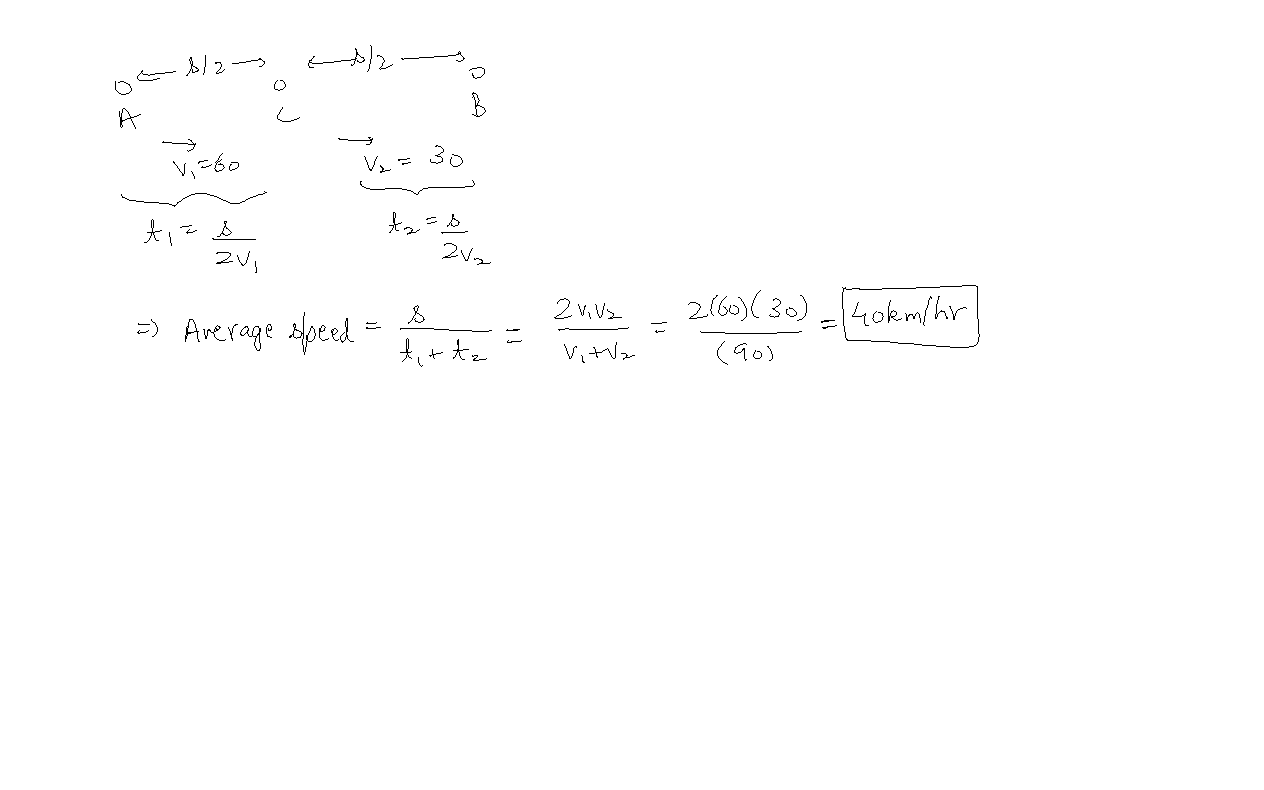 s/2 s/2
A C B
v₁=60 v₂ = 30
t₁ = s/2v₁ t₂ = s/2v₂
⇒ Average speed = s/(t₁ + t₂) = 2v₁v₂/(v₁+v₂) = 2(60)(30)/(90) = 40km/hr